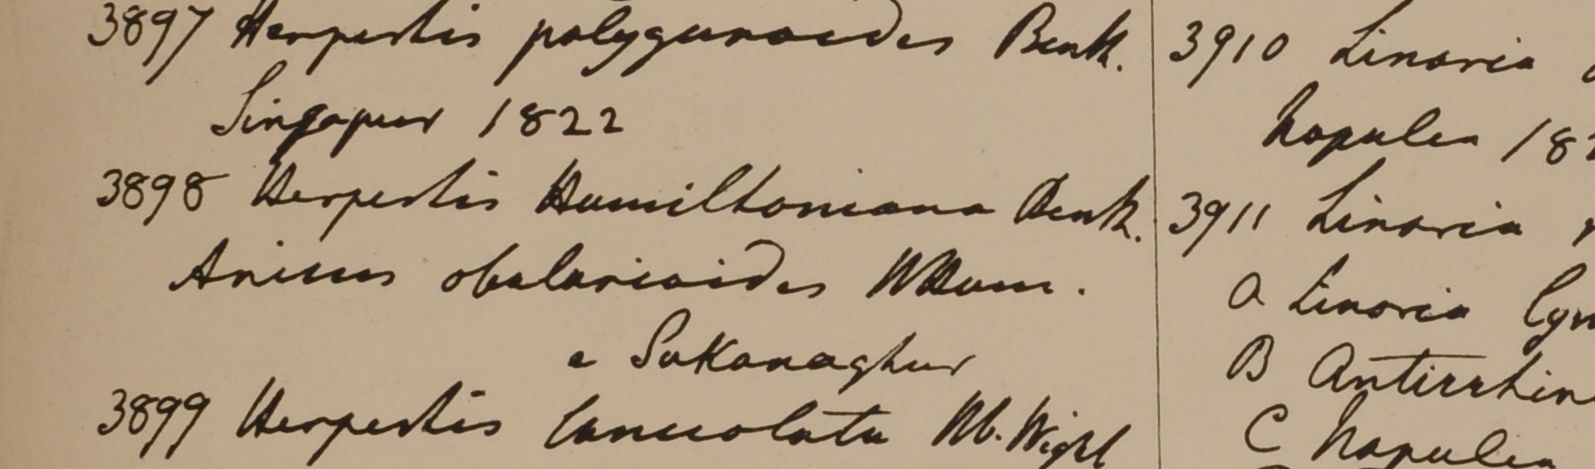 3897 Herpestis polygonoides Benth.
Singapur 1822
3898 Herpestis Hamiltoniana Benth.
obolarioides HHam.
e Sukanaghur
3899 Herpestis lanceolata Hb. Wight
3910 Linaria
Napalea 182
3911 Linaria
a Linaria Cym
B Antirrhin
C Napalia